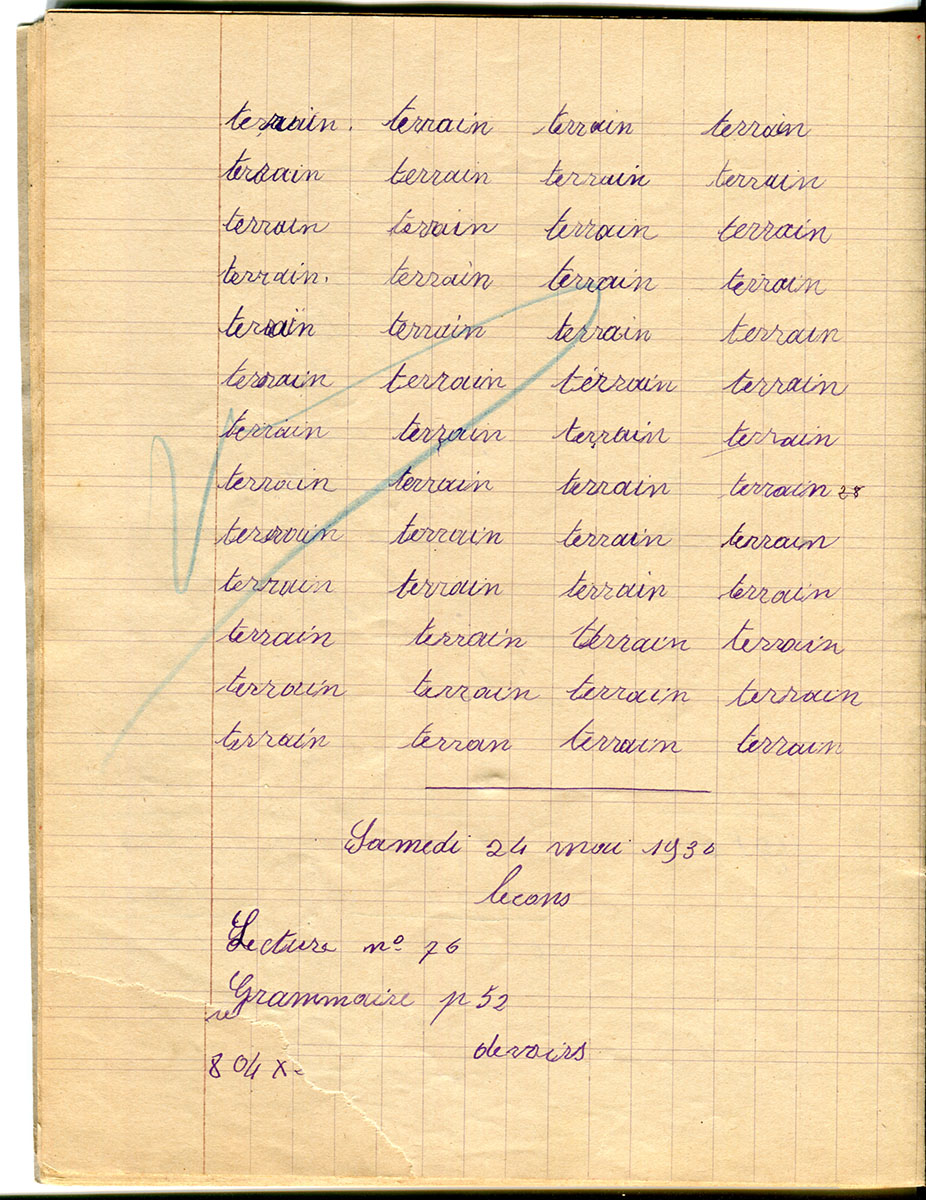 terrain. terrain terrain terrain
terrain terrain terrain terrain
terrain terrain terrain terrain
terrain. terrain terrain terrain
terrain terrain terrain terrain
terrain terrain térrain terrain
terrain terrain terrain terrain
terrain terrain terrain terrain 28
terrain terrain terrain terrain
terrain terrain terrain terrain
terrain terrain terrain terrain
terrain terrain terrain terrain
terrain terran terrain terrain
Samedi 24 mai 1930
lecons
Lecture nº 76
Grammaire p 52
devoirs
804 x